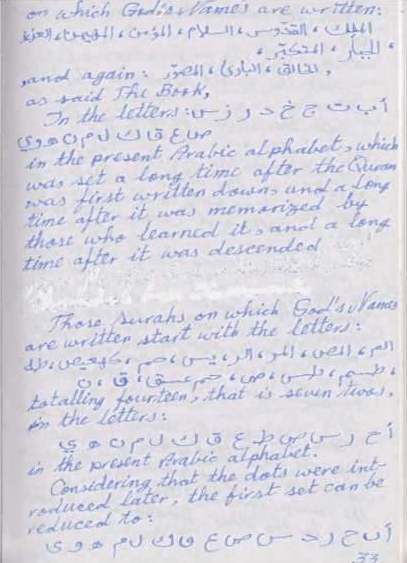 on which God's Names are written:
الملك، القدّوس، السلام، المؤمن، المهيمن، العزيز
، الجبار، المتكبّر،
and again: الخالق، البارئ، المصوّر،
as said The Book,
In the letters: أ ب ت ج خ د ر ز س
ص ع ق ك ل م ن ه و ي
in the present Arabic alphabet, which
was set a long time after the Quran
was first written down, and a long
time after it was memorized by
those who learned it, and a long
time after it was descended
Those surahs on which God's Names
are written start with the letters:
الم، المص، المر، الر، يس، حم، كهيعص، طه
، طسم، طس، ص، حم عسق، ق، ن
totalling fourteen, that is seven twos,
in the letters:
أ ح ر س ص ط ع ق ك ل م ن ه ي
in the present Arabic alphabet.
Considering that the dots were int-
roduced later, the first set can be
reduced to:
33